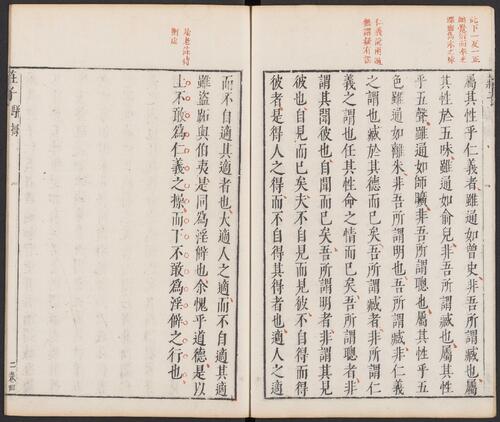 屬其性乎仁義者雖通如曾史非吾所謂臧也屬
其性於五味雖通如俞兒非吾所謂臧也屬其性
乎五聲雖通如師曠非吾所謂聰也屬其性乎五
色雖通如離朱非吾所謂明也吾所謂臧非仁義
之謂也臧於其德而已矣吾所謂臧者非所謂仁
義之謂也任其性命之情而已矣吾所謂聰者非
謂其聞彼也自聞而已矣吾所謂明者非謂其見
彼也自見而已矣夫不自見而見彼不自得而得
彼者是得人之得而不自得其得者也適人之適
而不自適其適者也夫適人之適而不自適其適
雖盜跖與伯夷是同為淫僻也余愧乎道德是以
上不敢為仁義之操而下不敢為淫僻之行也
莊子 駢拇